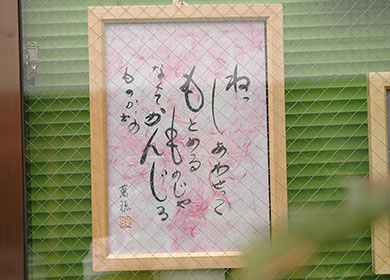 ねっ
しあわせって
もとめる
ものじゃ
なくてかんじる
もの